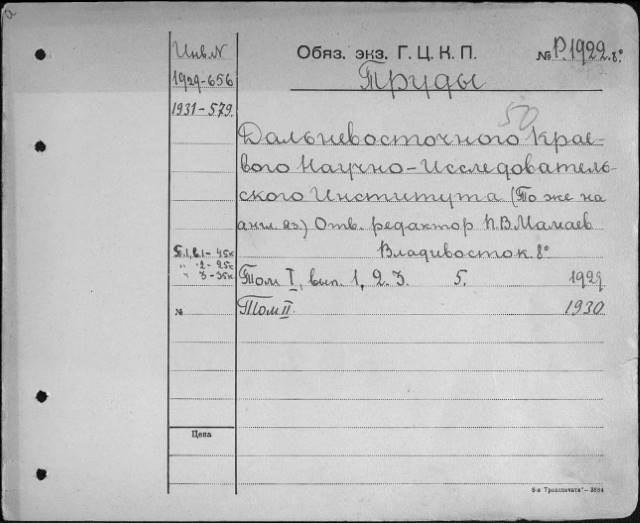 а
Инв.N
Обяз. экз. Г. Ц. К. П.
№ Р.1922.8°
1929-656
Труды
1931-579.
50
Дальневосточного Крае-
вого Научно-Исследователь-
ского Института (То же на
англ. яз.) Отв. редактор П.В.Мамаев
Владивосток. 8°
Т.1, в.1- 45к
" -2- 25к
" 3-35к
Том I, вып. 1, 2. 3. 5. 1929
№ Том II. 1930.
Цена